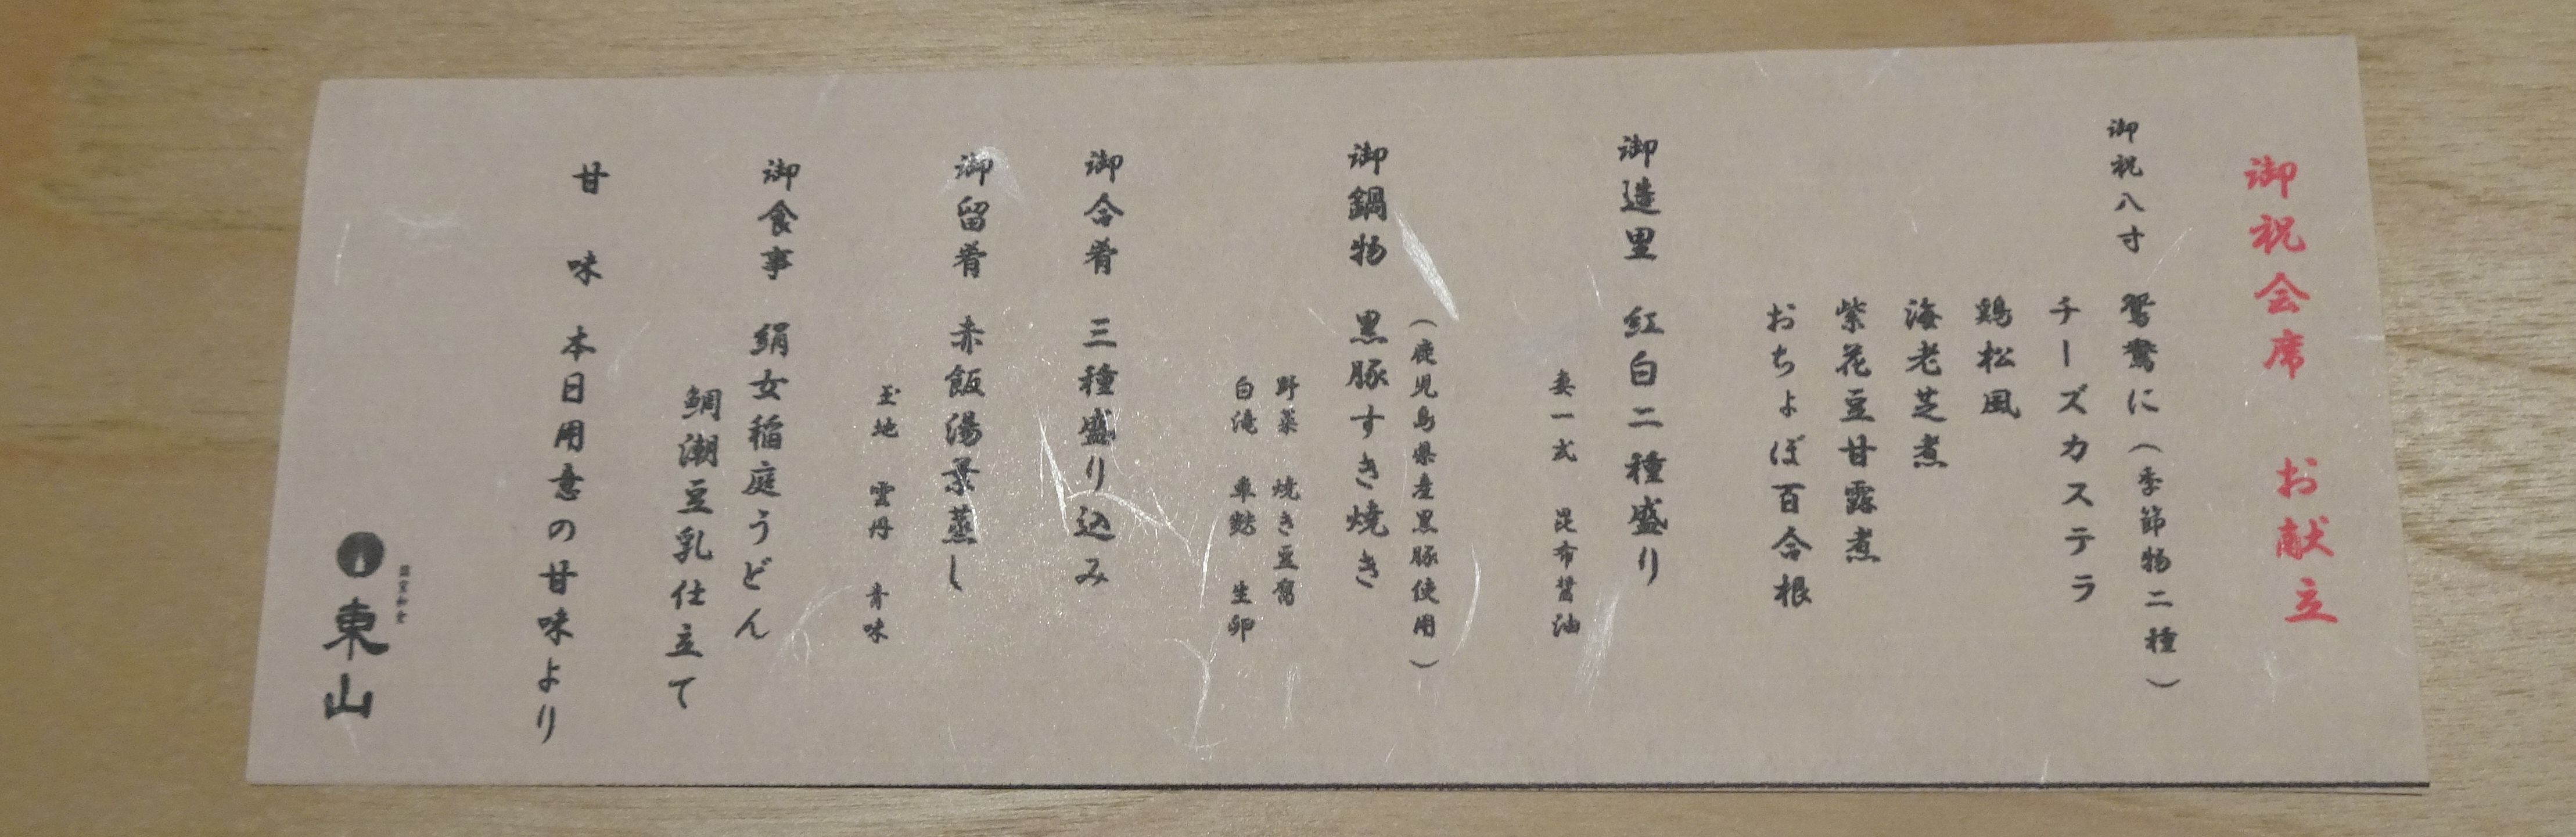 御祝会席 お献立
御祝八寸 鴛鴦に(季節物二種)
チーズカステラ
鶏松風
海老芝煮
紫花豆甘露煮
おちょぼ百合根
御造里 紅白二種盛り
妻一式 昆布醤油
(鹿児島県産黒豚使用)
御鍋物 黒豚すき焼き
野菜 焼き豆腐
白滝 車麩 生卵
御合肴 三種盛り込み
御留肴 赤飯湯葉蒸し
玉地 雲丹 青味
御食事 絹女稲庭うどん
鯛潮豆乳仕立て
甘味 本日用意の甘味より
個室和食
東山